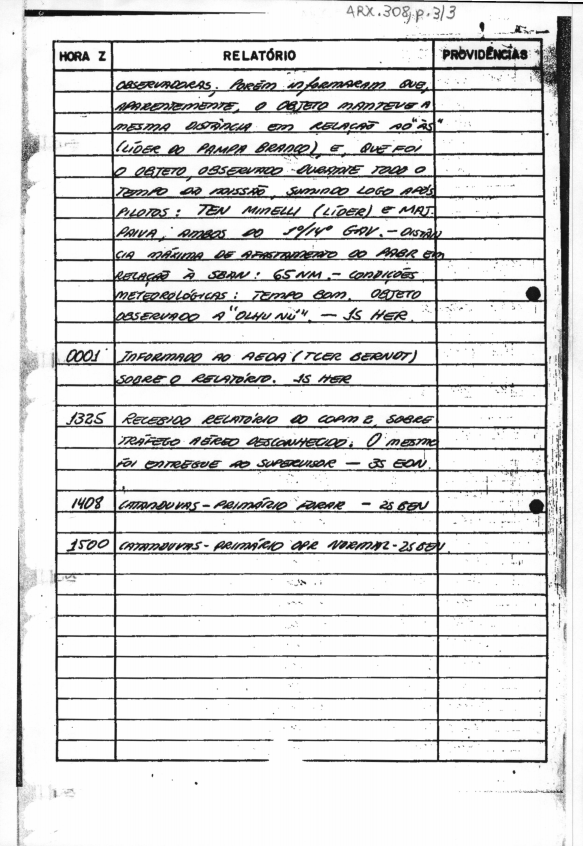 ARX.308, p.3/3
HORA Z RELATÓRIO PROVIDÊNCIAS
OBSERVADORAS, PORÉM INFORMARAM QUE,
APARENTEMENTE, O OBJETO MANTEVE A
MESMA DISTÂNCIA EM RELAÇÃO AO "ÁS"
(LÍDER DO PAMPA BRANCO) E, QUE FOI
O OBJETO, OBSERVADO DURANTE TODO O
TEMPO DA MISSÃO, SUMINDO LOGO APÓS
PILOTOS: TEN MINELLI (LÍDER) E MAJ.
PAIVA, AMBOS DO 1º/14º GAV. - DISTÂN
CIA MÁXIMA DE AFASTAMENTO DO PABR EM
RELAÇÃO À SBAN: 65 NM. - CONDIÇÕES
METEOROLÓGICAS: TEMPO BOM. OBJETO
OBSERVADO A "OLHU NÚ". - 1S HER.
0001 INFORMADO AO AEDA (TCER BERNOT)
SOBRE O RELATÓRIO. 1S HER
1325 RECEBIDO RELATÓRIO DO COPM 2, SOBRE
TRÁFEGO AÉREO DESCONHECIDO. O MESMO
FOI ENTREGUE AO SUPERVISOR - 3S EDN.
1408 CATANDUVAS - PRIMÁRIO FORAR - 2S BEN
1500 CATANDUVAS - PRIMÁRIO OPR NORMAL - 2S BEN